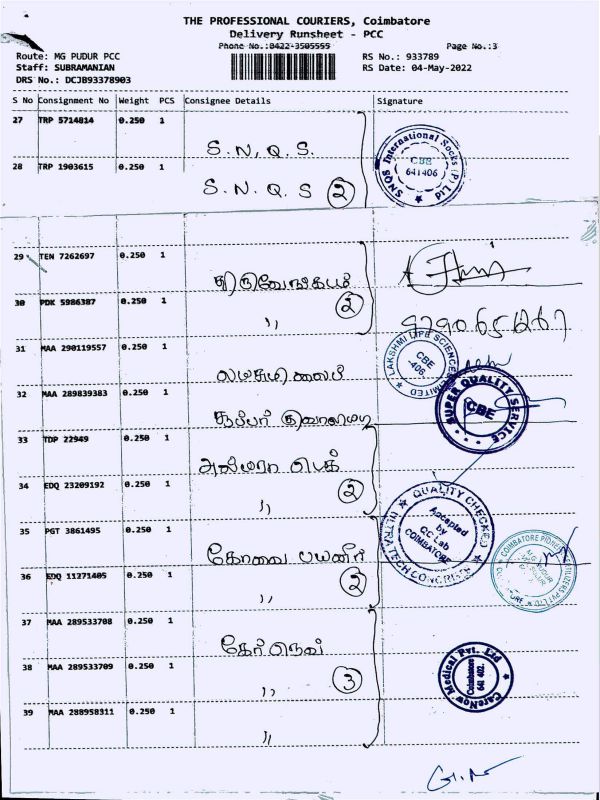 THE PROFESSIONAL COURIERS, Coimbatore
Delivery Runsheet - PCC
Phone No.:0422-3505555
Page No.:3
Route: MG PUDUR PCC
RS No.: 933789
Staff: SUBRAMANIAN
RS Date: 04-May-2022
DRS No.: DCJB93378903
S No Consignment No Weight PCS Consignee Details Signature
27 TRP 5714814 0.250 1
S.N,Q.S.
SNQS International Socks (P) Ltd
CBE
641406
28 TRP 1903615 0.250 1
S.N.Q.S 2
29 TEN 7262697 0.250 1
2
30 PDK 5986387 0.250 1
〃
31 MAA 290119557 0.250 1
LAKSHMI LIFE SCIENCES LIMITED
CBE
-406.
32 MAA 289839383 0.250 1
SUPER QUALITY SERVICE
CBE
33 TDP 22949 0.250 1
அல்ட்ரா டெக்
2
34 EDQ 23209192 0.250 1
〃
QUALITY CHECKED
Accepted
by
QC Lab
COIMBATORE
ULTRATECH CONCRETE
35 PGT 3861495 0.250 1
கோவை பயனீர்
2
COIMBATORE PIONEER FERTILIZERS PVT LTD
MG PUDUR
36 EDQ 11271405 0.250 1
〃
37 MAA 289533708 0.250 1
கேர் நெவ்
38 MAA 289533709 0.250 1
〃 3
CareNow Medical Pvt. Ltd
Coimbatore
641 402.
39 MAA 288958311 0.250 1
〃